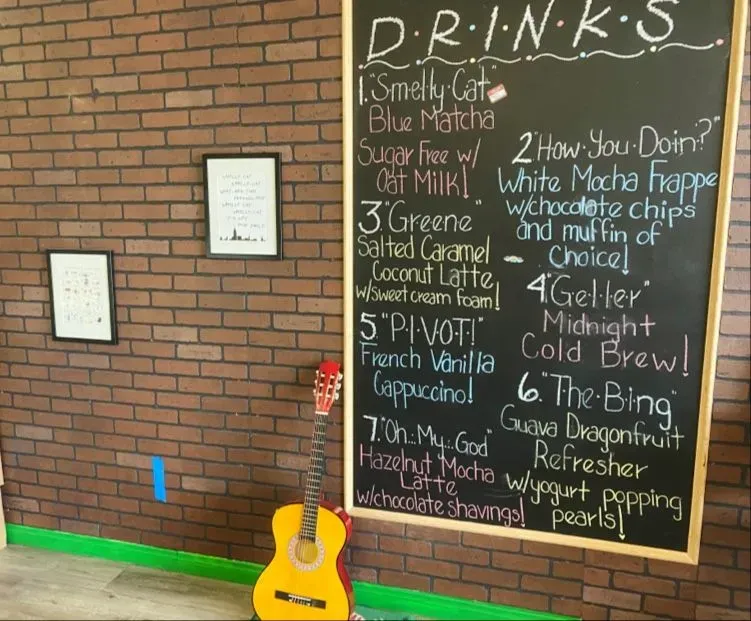 D.R.I.N.K.S
1. "Smelly.Cat"
Blue Matcha
Sugar Free w/
Oat Milk!
2."How.You.Doin?"
White Mocha Frappe
w/chocolate chips
and muffin of
Choice!
3. "Greene"
Salted Caramel
Coconut Latte
w/sweet cream foam!
4."Gel.l.er"
Midnight
Cold Brew!
5. "P.I.V.O.T!"
French Vanilla
Cappuccino!
6. "The.Bing"
Guava Dragonfruit
Refresher
w/yogurt popping
pearls!
7."Oh...My...God"
Hazelnut Mocha
Latte
w/chocolate shavings!
SMELLY CAT
SMELLY CAT